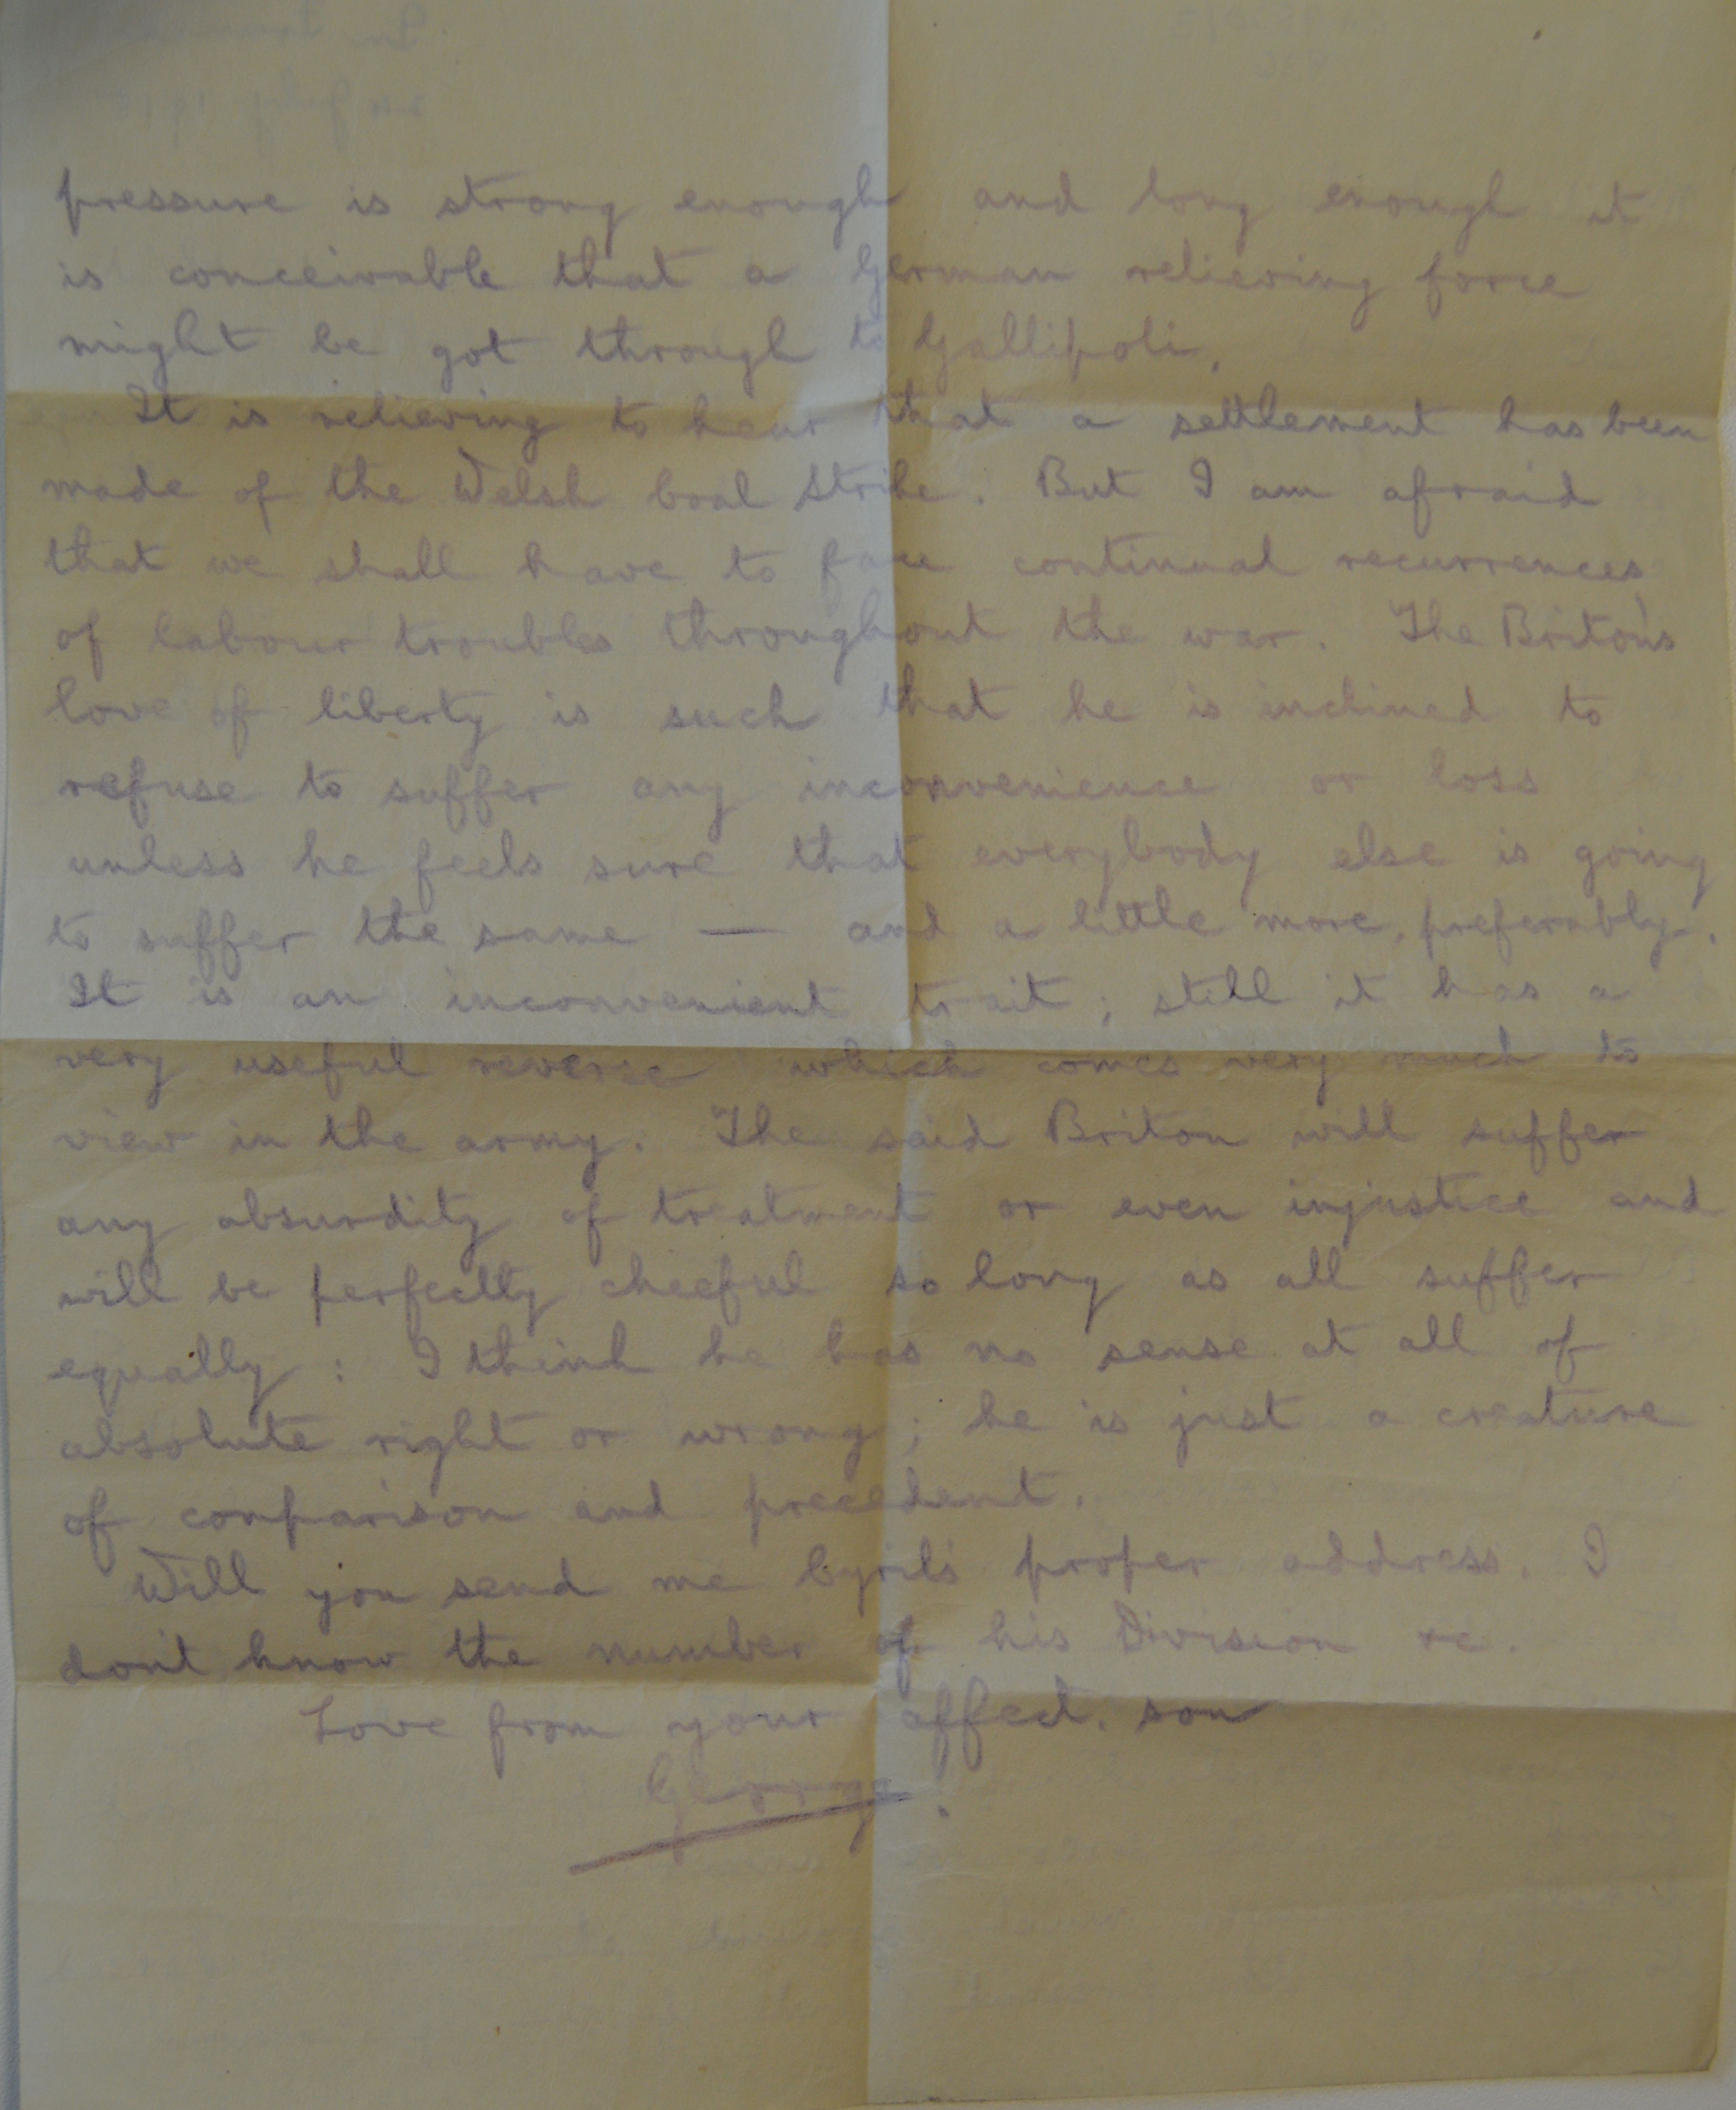 pressure is strong enough and long enough it
is conceivable that a German relieving force
might be got through to Gallipoli.
It is relieving to hear that a settlement has been
made of the Welsh Coal Strike. But I am afraid
that we shall have to face continual recurrences
of labour troubles throughout the war. The Briton's
love of liberty is such that he is inclined to
refuse to suffer any inconvenience or loss
unless he feels sure that everybody else is going
to suffer the same — and a little more, preferably.
It is an inconvenient trait; still it has a
very useful reverse which comes very much to
view in the army. The said Briton will suffer
any absurdity of treatment or even injustice and
will be perfectly cheeful so long as all suffer
equally: I think he has no sense at all of
absolute right or wrong; he is just a creature
of comparison and precedent.
Will you send me Cyril's proper address. I
don't know the number of his Division &c.
Love from your affect. son
George.